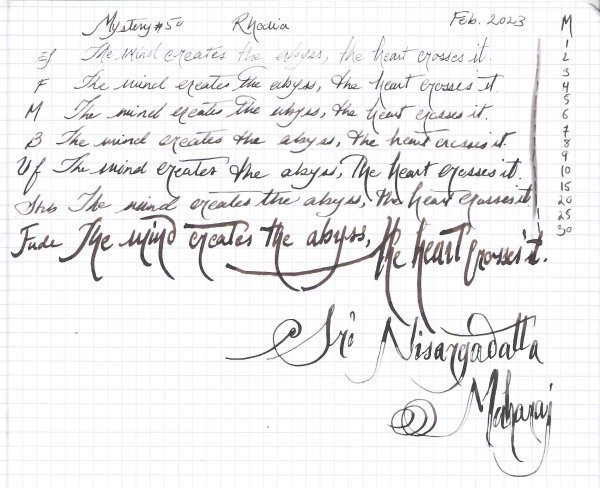 Mystery #50 Rhodia Feb. 2023 M
Ef The mind creates the abyss, the heart crosses it.
F The mind creates the abyss, the heart crosses it.
M The mind creates the abyss, the heart crosses it.
B The mind creates the abyss, the heart crosses it.
Uf The mind creates the abyss, the heart crosses it.
Stub The mind creates the abyss, the heart crosses it.
Fude The mind creates the abyss, the heart crosses it.
Sri Nisargadatta
Maharaj
1
2
3
4
5
6
7
8
9
10
15
20
25
30